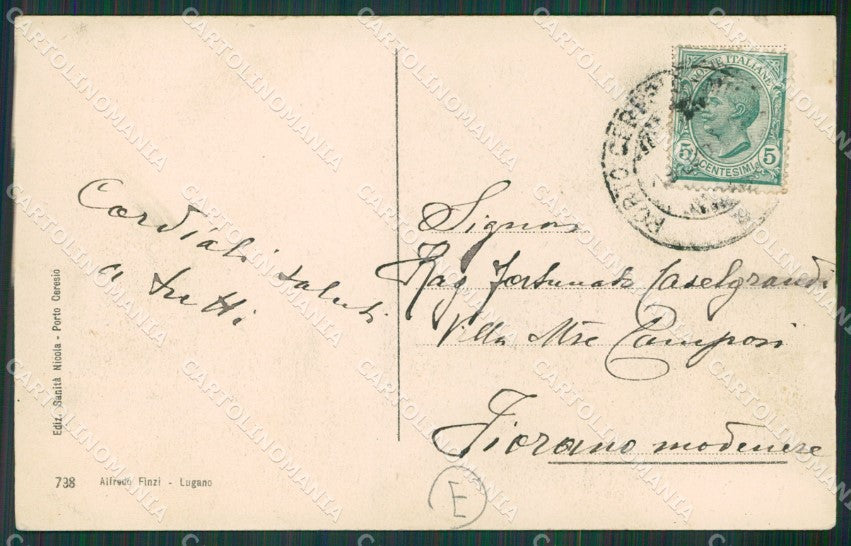 Cordiali saluti
a tutti
Ediz. Sanità Nicola - Porto Ceresio
798 Alfredo Finzi - Lugano
PORTO CERESIO
POSTE ITALIANE
5 CENTESIMI 5
Signor
Rag Fortunato Caselgrandi
Villa Mse Campori
Fiorano modenese
E
CARTOLINOMANIA